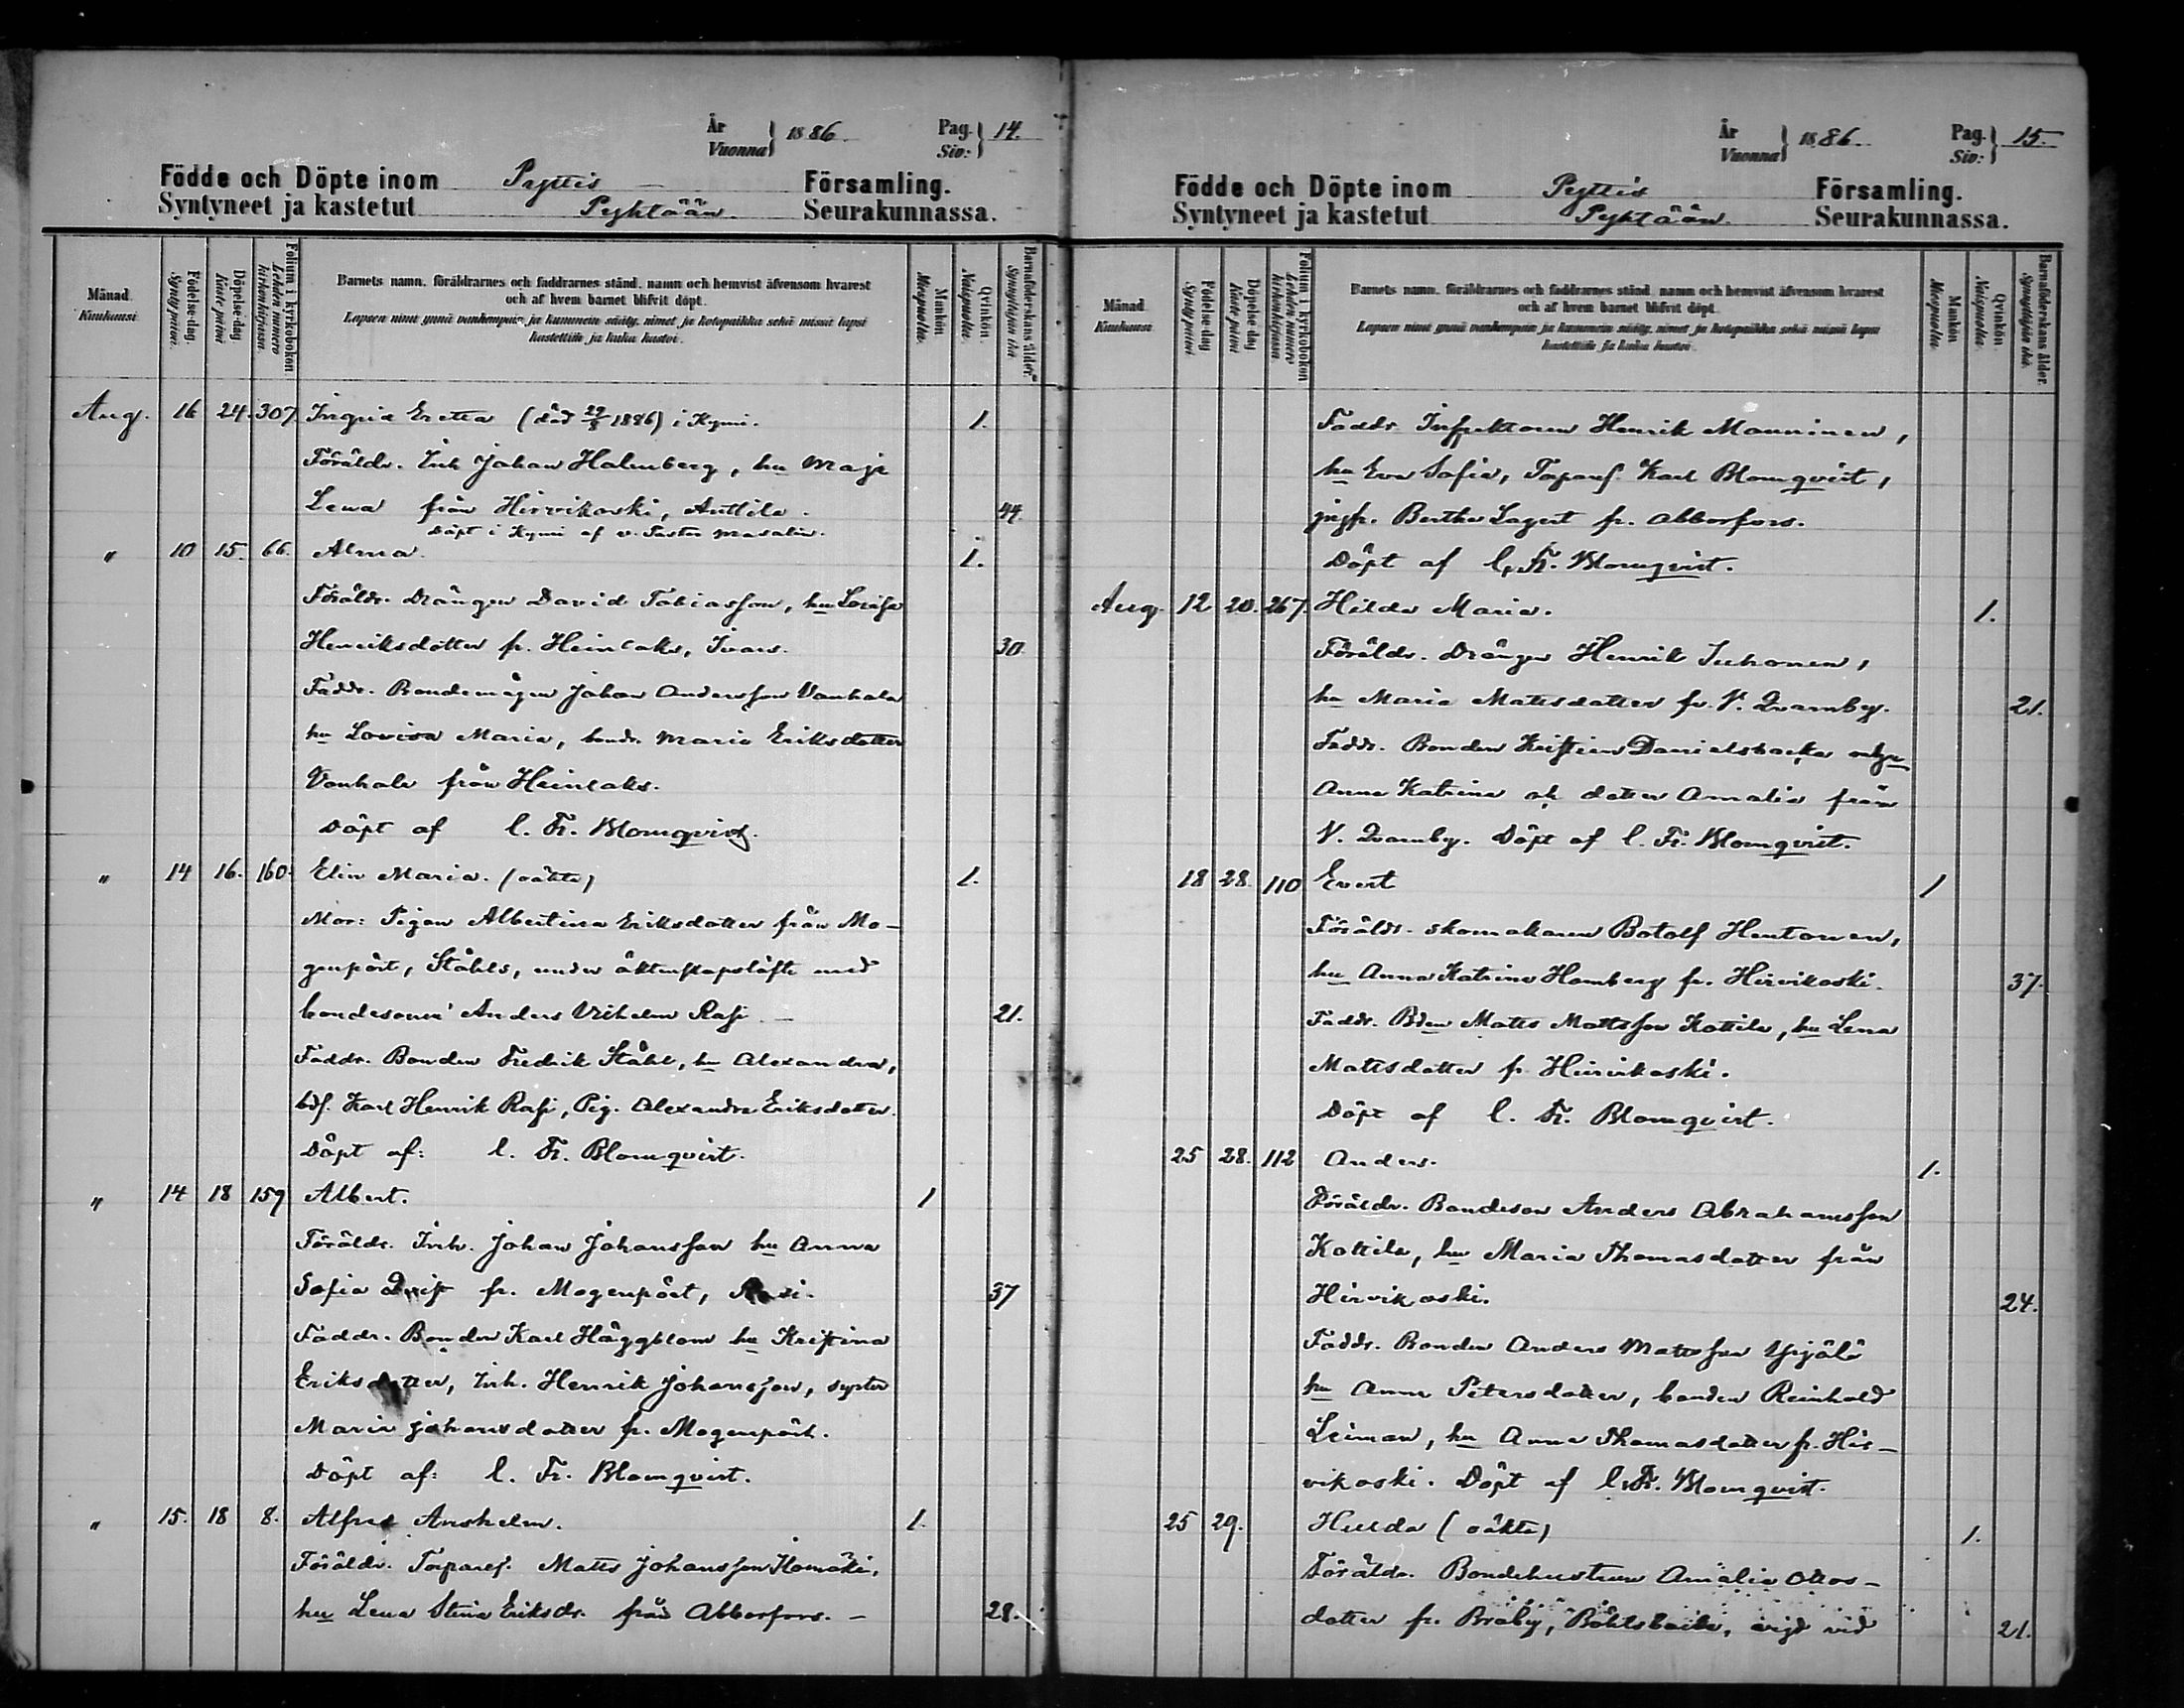 År
Vuonna } 1886. Pag.
Siv: } 14.
Födde och Döpte inom Pyttis Församling.
Syntyneet ja kastetut Pyhtään. Seurakunnassa.
Månad. Kuukausi.
Födelse-dag. Syntypäivä.
Döpelse-dag. Kastepäivä
Folium i kyrkoboken Lehden numero kirkonkirjassa.
Barnets namn, föräldrarnes och faddrarnes stånd, namn och hemvist äfvensom hvarest
och af hvem barnet blifvit döpt.
Lapsen nimi ynnä vanhempain ja kummein sääty, nimet ja kotopaikka sekä missä lapsi
kastettiin ja kuka kastoi.
Mankön. Miespuolia.
Qvinkön. Naispuolia.
Barnaföderskans ålder. Synnyttäjän ikä.
Aug. 16 24. 307 Ingrid Eretta (död 29/8 1886) i Kymi. 1.
Föräldr. Inh Johan Holmberg, hu Maja
Lena från Hirvikoski, Anttila. 44.
Döpt i Kymi af v. Pastor Masalin.
" 10 15. 66. Alma. 1.
Föräldr. Drängen David Tobiasson, hu Lovisa
Henriksdotter fr. Heinlaks, Ivars. 30.
Faddr. Bondemågen Johan Andersson Vanhala
hu Lovisa Maria, bondr. Maria Eriksdotter
Vanhala från Heinlaks.
Döpt af C. Fr. Blomqvist.
" 14 16. 160. Elin Maria. (oäkta) 1.
Mor: Pigan Albertina Eriksdotter från Mo-
genpört, Ståhls, under äktenskapslöfte med
bondesonen Anders Vilhelm Rasi 21.
Faddr. Bonden Fredrik Ståhl, hu Alexandra,
bds. Karl Henrik Rasi, Pig. Alexandra Eriksdotter.
Döpt af: C. Fr. Blomqvist.
" 14 18 159 Albert. 1
Föräldr. Inh. Johan Johansson hu Anna
Sofia Qvist fr. Mogenpört, Rasi. 37
Faddr. Bonden Karl Häggblom hu Kristina
Eriksdotter, Inh. Henrik Johansson, syster
Maria Johansdotter fr. Mogenpört.
Döpt af: C. Fr. Blomqvist.
" 15. 18 8. Alfred Anshelm. 1.
Föräldr. Torpares. Matts Johansson Homäki,
hu Lena Stina Eriksdr. från Abborfors. 28.
År
Vuonna } 1886. Pag.
Siv: } 15.
Födde och Döpte inom Pyttis Församling.
Syntyneet ja kastetut Pyhtään. Seurakunnassa.
Månad. Kuukausi.
Födelse-dag. Syntypäivä.
Döpelse-dag. Kastepäivä
Folium i kyrkoboken Lehden numero kirkonkirjassa
Barnets namn, föräldrarnes och faddrarnes stånd, namn och hemvist äfvensom hvarest
och af hvem barnet blifvit döpt.
Lapsen nimi ynnä vanhempain ja kummein sääty, nimet ja kotopaikka sekä missä lapsi
kastettiin ja kuka kastoi.
Mankön. Miespuolia.
Qvinkön. Naispuolia.
Barnaföderskans ålder. Synnyttäjän ikä.
Faddr. Inspektoren Henrik Manninen,
hu Eva Sofia, Torpares. Karl Blomqvist,
jngfr. Bertha Lagert fr. Abborfors.
Döpt af C. Fr. Blomqvist.
Aug. 12 20. 267. Hilda Maria. 1.
Föräldr. Drängen Henrik Juhonen,
hu Maria Mattsdotter fr. V. Qvarnby. 21.
Faddr. Bonden Kristian Danielsbacka
Anna Katrina och dotter Amalia från
V. Qvarnby. Döpt af C. Fr. Blomqvist.
18 28. 110 Evert 1
Föräldr. skomakaren Botolf Hentonen,
hu Anna Katrina Homberg fr. Hirvikoski. 37.
Faddr. Bden Matts Mattsson Kottila, hu Lena
Mattsdotter fr Hirvikoski.
Döpt af C. Fr. Blomqvist.
25 28. 112 Anders. 1.
Föräldr. Bondeson Anders Abrahamsson
Kottila, hu Maria Thomasdotter från
Hirvikoski. 24.
Faddr. Bonden Anders Mattsson Yrjölä
hu Anna Petersdotter, bonden Reinhold
Leiman, hu Anna Thomasdotter fr. Hir-
vikoski. Döpt af C. Fr. Blomqvist.
25 29. Hulda (oäkta) 1.
Föräldr. Bondehustrun Amalia Ottos-
dotter fr. Braby, Böhlsbacka, vigd vid 21.